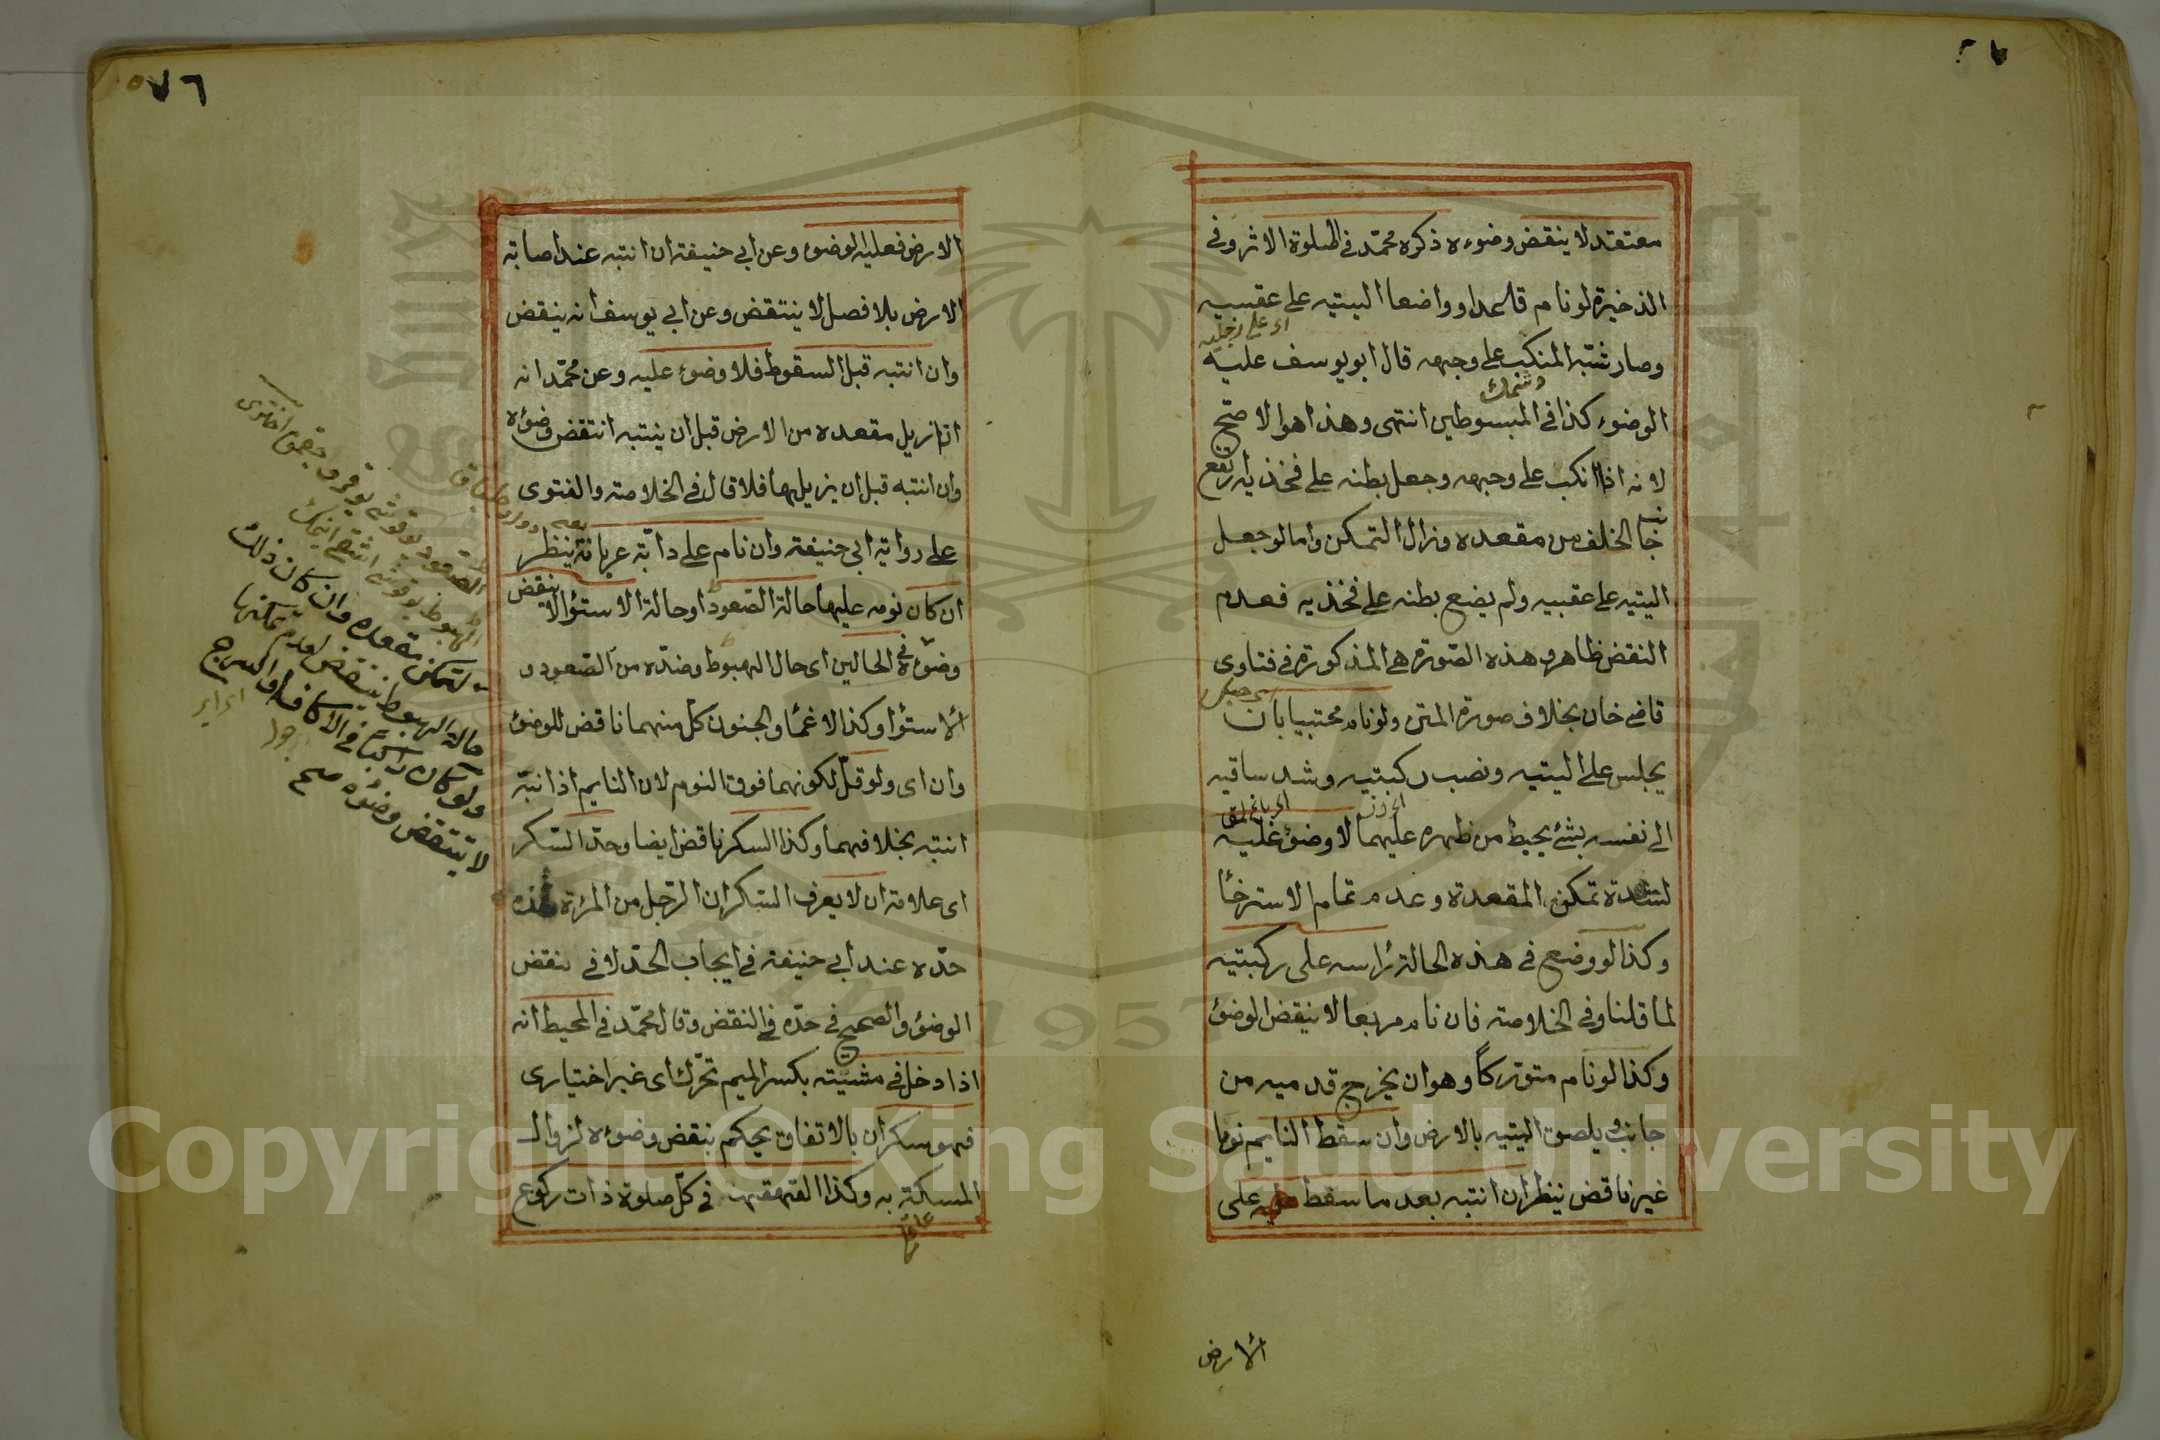 معتقد لا ينقض وضوءه ذكره محمد في صلوة الاثر وفي
الذخيرة لو نام قاعدا وواضعا اليتيه على عقبيه
اى على رجليه
وصار شبه المنكب على وجهه قال ابو يوسف عليه
الوضوء كذا في المبسوطين انتهى وهذا هو الاصح
لانه اذا انكب على وجهه وجعل بطنه على فخذيه ارتفع
جانب الخلف من مقعده وزال التمكن واما لو جعل
اليتيه على عقبيه ولم يضع بطنه على فخذيه فعدم
النقض ظاهر وهذه الصورة هي المذكورة في فتاوى
قاضي خان بخلاف صورة المتن ولو نام محتبيا بان
يجلس على اليتيه ونصب ركبتيه وشد ساقيه
الى نفسه بشئ يحيط من ظهره عليهما لا وضوء عليه
لشدة تمكن المقعدة وعدم تمام الاسترخأ
وكذا لو وضع في هذه الحالة رأسه على ركبتيه
لما قلنا وفي الخلاصة فان نام مربعا لا ينقض الوضؤ
وكذا لو نام متوركاً وهو ان يخرج قدميه من
جانب ويلصق اليتيه بالارض وان سقط النايم نوما
غير ناقض ينظر ان انتبه بعد ما سقط على
الارض
٥٧٦
الارض فعليه الوضوء وعن ابي حنيفة ان انتبه عند اصابة
الارض بلا فصل لا ينتقض وعن ابي يوسف انه ينقض
وان انتبه قبل السقوط فلا وضوء عليه وعن محمد انه
ان ازيل مقعده من الارض قبل ان ينتبه انتقض وضوئه
وان انتبه قبل ان يزيلها فلا قال في الخلاصة والفتوى
على رواية ابي حنيفة وان نام على دابة عريانة ينظر
ان كان نومه عليها حالة الصعود او حالة الاستؤا لا ينقض
وضوئه في الحالين اى حال الهبوط وضده من الصعود و
الاستؤا وكذا الاغمأ والجنون كل منهما ناقض للوضؤ
وان اى ولو قل لكونهما فوق النوم لان النايم اذا نبه
انتبه بخلافهما وكذا السكر ناقض ايضا وحد السكر
اى علامة ان لا يعرف السكران الرجل من المرئة هذه
حده عند ابي حنيفة في ايجاب الحد لا في نقض
الوضؤ والصحيح في حده في النقض وقال محمد في المحيط انه
اذا دخل في مشيته بكسر الميم تحرك اى غير اختيارى
فهو سكران بالاتفاق يحكم بنقض وضوءه لزوال
المسكة به وكذا القهقهة في كل صلوة ذات ركوع
لتمكن مقعده وان كان ذلك
حالة الهبوط ينقض لعدم تمكنها
ولو كان راكبا في الاكاف او السرج
لا ينتقض وضوئه صح
Copyright © King Saud University
1957